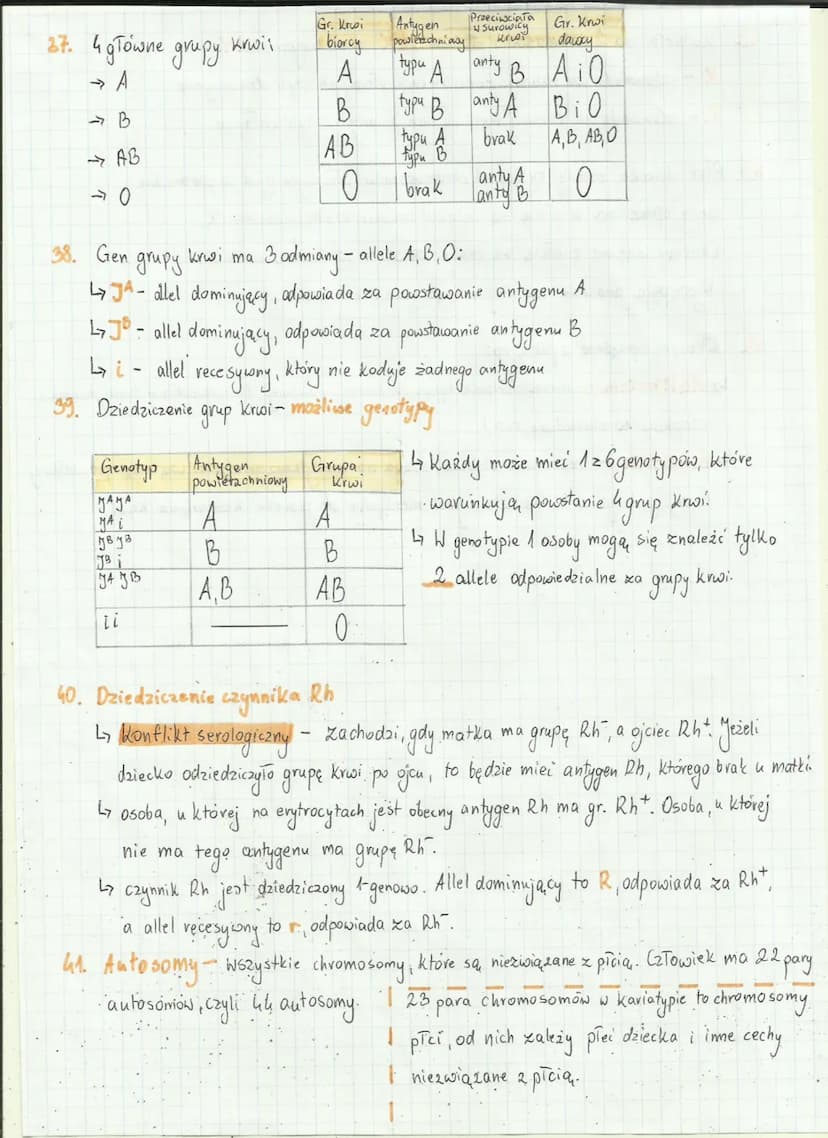 37. 4 główne grupy krwi:
→ A
→ B
→ AB
→ O
Gr. Krwi biorcy | Antygen powierzchniowy | Przeciwciała w surowicy krwi | Gr. Krwi dawcy
A | typu A | anty B | A i O
B | typu B | anty A | B i O
AB | typu A typu B | brak | A, B, AB, O
O | brak | anty A anty B | O
38. Gen grupy krwi ma 3 odmiany – allele A, B, O:
↳ Jᴬ – allel dominujący, odpowiada za powstawanie antygenu A
↳ Jᴮ – allel dominujący, odpowiada za powstawanie antygenu B
↳ i – allel recesywny, który nie koduje żadnego antygenu
39. Dziedziczenie grup krwi – możliwe genotypy
Genotyp | Antygen powierzchniowy | Grupa krwi
JᴬJᴬ Jᴬi | A | A
JᴮJᴮ Jᴮi | B | B
JᴬJᴮ | A, B | AB
ii | — | O
↳ Każdy może mieć 1 z 6 genotypów, które
warunkują powstanie 4 grup krwi.
↳ W genotypie 1 osoby mogą się znaleźć tylko
2 allele odpowiedzialne za grupy krwi.
40. Dziedziczenie czynnika Rh
↳ Konflikt serologiczny – zachodzi, gdy matka ma grupę Rh⁻, a ojciec Rh⁺. Jeżeli
dziecko odziedziczyło grupę krwi po ojcu, to będzie mieć antygen Rh, którego brak u matki.
↳ osoba, u której na erytrocytach jest obecny antygen Rh ma gr. Rh⁺. Osoba, u której
nie ma tego antygenu ma grupę Rh⁻.
↳ czynnik Rh jest dziedziczony 1-genowo. Allel dominujący to R, odpowiada za Rh⁺,
a allel recesywny to r, odpowiada za Rh⁻.
41. Autosomy – wszystkie chromosomy, które są niezwiązane z płcią. Człowiek ma 22 pary
autosomów, czyli 44 autosomy.
23 para chromosomów w kariatypie to chromosomy
płci, od nich zależy płeć dziecka i inne cechy
niezwiązane z płcią.